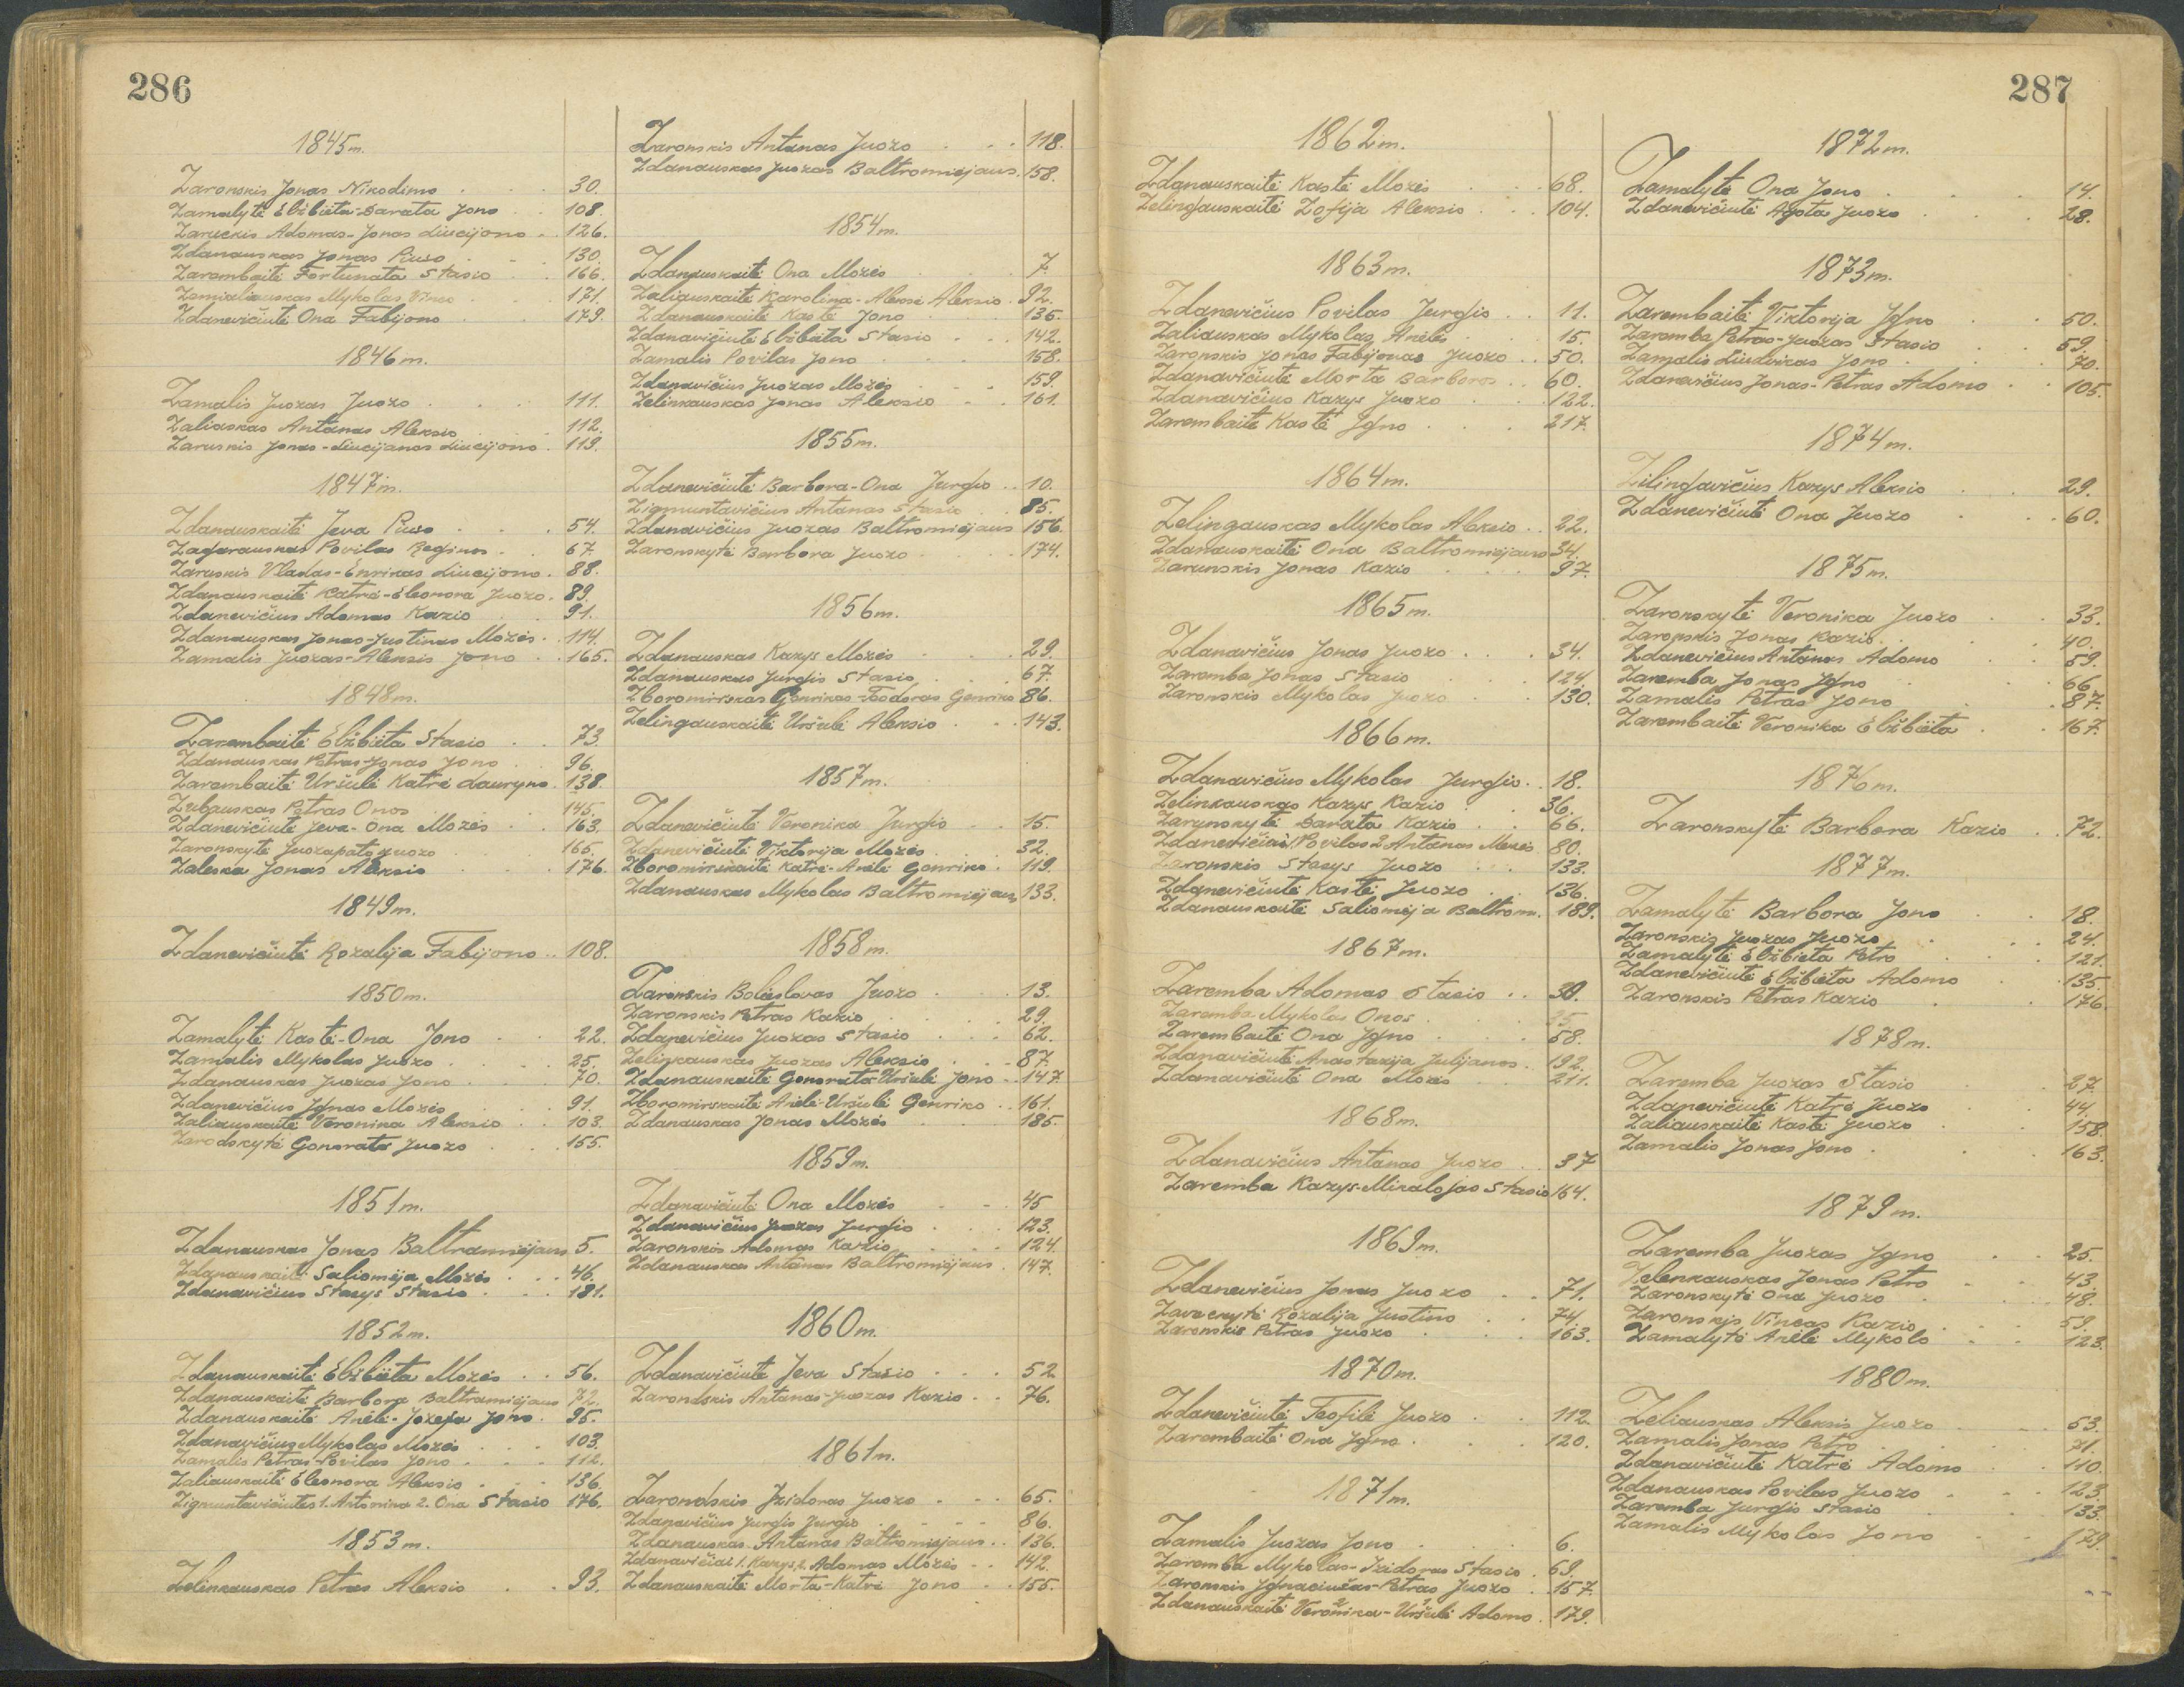 286
1845m.
Zaronskis Jonas Nikodimo 30.
Zamalytė Elžbieta-Darata Jono 108.
Zaruckis Adomas-Jonas Liucijono 126.
Zdanauskas Jonas Piuso 130.
Zarembaitė Fortunata Stasio 166.
Mykolas 171.
Zdanevičiutė Ona Fabijono 179.
1846m.
Zamalis Juozas Juozo 111.
Zaliaskas Antanas Aleksio 112.
Zaruskis Jonas-Liucijanas Liucijono 119.
1847m.
Zdanauskaitė Jeva Piuso 54.
Zagarauskas Povilas Reginos 67.
Zaruskis Vladas-Enrikas Liucijono 88.
Zdanauskaitė Katrė-Eleonora Juozo 89.
Zdanevičius Adomas Kazio 91.
Zdanauskas Jonas-Justinas Mozės 114.
Zamalis Juozas-Aleksis Jono 165.
1848m.
Zarembaitė Elžbieta Stasio 73.
Zdanauskas Petras-Jonas Jono 96.
Zarembaitė Uršulė Katrė Lauryno 138.
Zubauskas Petras Onos 145.
Zdanevičiutė Jeva-Ona Mozės 163.
Zaronskytė Juozapata Juozo 165.
Zaleska Jonas Aleksio 176.
1849m.
Zdanevičiutė Rozalija Fabijono 108.
1850m.
Zamalytė Kastė-Ona Jono 22.
Zamalis Mykolas Juozo 25.
Zdanauskas Juozas Jono 70.
Zdanevičius Jonas Mozės 91.
Zaliauskaitė Veronika Aleksio 103.
Zarodskytė Gonorata Juozo 155.
1851m.
Zdanauskas Jonas Baltramiejaus 5.
Zdanauskaitė Saliomėja Mozės 46.
Zdanavičius Stasys Stasio 181.
1852m.
Zdanauskaitė Elžbieta Mozės 56.
Zdanauskaitė Barbora Baltramiejaus 72.
Zdanauskaitė Anėlė-Jozefa Jono 95.
Zdanavičius Mykolas Mozės 103.
Zamalis Petras-Povilas Jono 112.
Zaliauskaitė Eleonora Aleksio 136.
Zigmuntavičiutės 1. Antonina 2. Ona Stasio 176.
1853m.
Zelinkauskas Petras Aleksio 93.
Zaronskis Antanas Juozo 118.
Zdanauskas Juozas Baltromiejaus 158.
1854m.
Zdanauskaitė Ona Mozės 7.
Zaliauskaitė Karolina-Aleksė Aleksio 92.
Zdanauskaitė Kastė Jono 135.
Zdanavičiutė Elžbieta Stasio 142.
Zamalis Povilas Jono 158.
Zdanavičius Juozas Mozės 159.
Zelinkauskas Jonas Aleksio 161.
1855m.
Zdanevičiutė Barbora-Ona Jurgio 10.
Zigmuntavičius Antanas Stasio 85.
Zdanavičius Juozas Baltromiejaus 156.
Zaronskytė Barbora Juozo 174.
1856m.
Zdanauskas Kazys Mozės 29.
Zdanauskas Jurgis Stasio 67.
Zboromirskas Genrikas-Teodoras Genriko 86.
Zelingauskaitė Uršulė Aleksio 143.
1857m.
Zdanevičiutė Veronika Jurgio 15.
Zdanevičiutė Viktorija Mozės 32.
Zboromirskaitė Katrė-Anėlė Genriko 119.
Zdanauskas Mykolas Baltromiejaus 133.
1858m.
Zaronskis Boleslovas Juozo 13.
Zaronskis Petras Kazio 29.
Zdanevičius Juozas Stasio 62.
Zelinkauskas Juozas Aleksio 87.
Zdanauskaitė Gonorata-Uršulė Jono 147.
Zboromirskaitė Anėlė-Uršulė Genriko 161.
Zdanauskas Jonas Mozės 185.
1859m.
Zdanavičiutė Ona Mozės 45
Zdanavičius Juozas Jurgio 123.
Zaronskis Adomas Kazio 124.
Zdanauskas Antanas Baltromiejaus 147.
1860m.
Zdanavičiutė Jeva Stasio 52
Zarondskis Antanas-Juozas Kazio 76.
1861m.
Zarondskis Izidoras Juozo 65.
Zdanavičius Jurgis Jurgio 86.
Zdanauskas Antanas Baltromiejaus 136.
Zdanavičiai 1. Kazys, 2. Adomas Mozės 142.
Zdanauskaitė Morta-Katrė Jono 155.
287
1862m.
Zdanauskaitė Kastė Mozės 68.
Zelingauskaitė Zofija Aleksio 104.
1863m.
Zdanavičius Povilas Jurgio 11.
Zaliauskas Mykolas Anėlės 15.
Zaronskis Jonas Fabijonas Juozo 50.
Zdanavičiutė Morta Barboros 60.
Zdanavičius Kazys Juozo 122.
Zarembaitė Kastė Igno 217.
1864m.
Zelingauskas Mykolas Aleksio 22.
Zdanauskaitė Ona Baltromiejaus 34.
Zarunskis Jonas Kazio 97.
1865m.
Zdanavičius Jonas Juozo 34.
Zaremba Jonas Stasio 124.
Zaronskis Mykolas Juozo 130.
1866m.
Zdanavičius Mykolas Jurgio 18.
Zelinkauskas Kazys Kazio 36.
Zarynskytė Darata Kazio 66.
Zdanevičiai 1 Povilas 2 Antanas Mozės 80.
Zaronskis Stasys Juozo 133.
Zdanevičiutė Kastė Juozo 136.
Zdanauskaitė Saliomėja Baltrom. 189.
1867m.
Zaremba Adomas Stasio 30.
Zaremba Mykolas Onos
Zarembaitė Ona Igno 58.
Zdanavičiutė Anastazija Julijanos 192.
Zdanavičiutė Ona Mozės 211.
1868m.
Zdanavičius Antanas Juozo 37
Zaremba Kazys-Mikalojas Stasio 164.
1869m.
Zdanevičius Jonas Juozo 71.
Rozalija Justino 74.
Zaronskis Petras Juozo 163.
1870m.
Zdanevičiutė Teofilė Juozo 112.
Zarembaitė Ona Igno 120.
1871m.
Zamalis Juozas Jono 6.
Zaremba Mykolas-Izidorus Stasio 69.
Zaronskis Ignaciušas-Petras Juozo 157.
Zdanauskaitė Veronika-Uršulė Adomo 179.
1872m.
Zamalytė Ona Jono 14.
Zdanevičiutė Agota Juozo 28.
1873m.
Zarembaitė Viktorija Igno 50.
Zaremba Petras-Juozas Stasio 59.
Zamalis Liudvikas Jono 70.
Zdanevičius Jonas-Petras Adomo 105.
1874m.
Zilingavičius Kazys Aleksio 29.
Zdanevičiutė Ona Juozo 60.
1875m.
Zaronskytė Veronika Juozo 33.
Zaronskis Jonas Kazio 40.
Zdanevičius Antanas Adomo 59.
Zaremba Jonas Igno 66.
Zamalis Petras Jono 87.
Zarembaitė Veronika Elžbieta 167.
1876m.
Zaronskytė Barbora Kazio 72.
1877m.
Zamalytė Barbora Jono 18.
Zaronskis Juozas Juozo 24.
Zamalytė Elžbieta Petro 121.
Zdanevičiutė Elžbieta Adomo 135.
Zaronskis Petras Kazio 176.
1878m.
Zaremba Juozas Stasio 27.
Zdanevičiutė Katrė Juozo 44.
Zaliauskaitė Kastė Juozo 158.
Zamalis Jonas Jono 163.
1879m.
Zaremba Juozas Igno 25.
Zelenkauskas Jonas Petro 43.
Zaronskytė Ona Juozo 48.
Zaronskis Vincas Kazio 59.
Zamalytė Anėlė Mykolo 123.
1880m.
Zeliauskas Aleksis Juozo 53.
Zamalis Jonas Petro 71.
Zdanavičiutė Katrė Adomo 110.
Zdanauskas Povilas Juozo 123.
Zaremba Jurgis Stasio 133.
Zamalis Mykolas Jono 179.